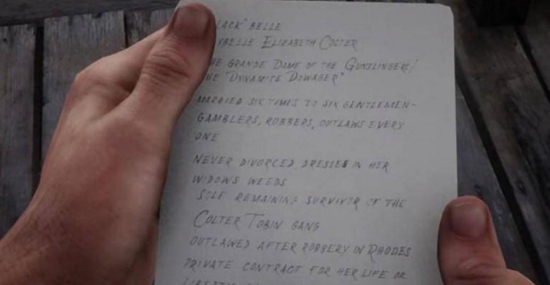 LACK" BELLE
YBELLE ELIZABETH COLTER
HE GRANDE DAME OF THE GUNSLINGERS/
HE "DYNAMITE DOWAGER"
MARRIED SIX TIMES TO SIX GENTLEMEN-
GAMBLERS, ROBBERS, OUTLAWS EVERY
ONE
NEVER DIVORCED DRESSES IN HER
WIDOWS WEEDS
SOLE REMAINING SURVIVOR OF THE
COLTER TOBIN GANG
OUTLAWED AFTER ROBBERY IN RHODES
PRIVATE CONTRACT FOR HER LIFE OR